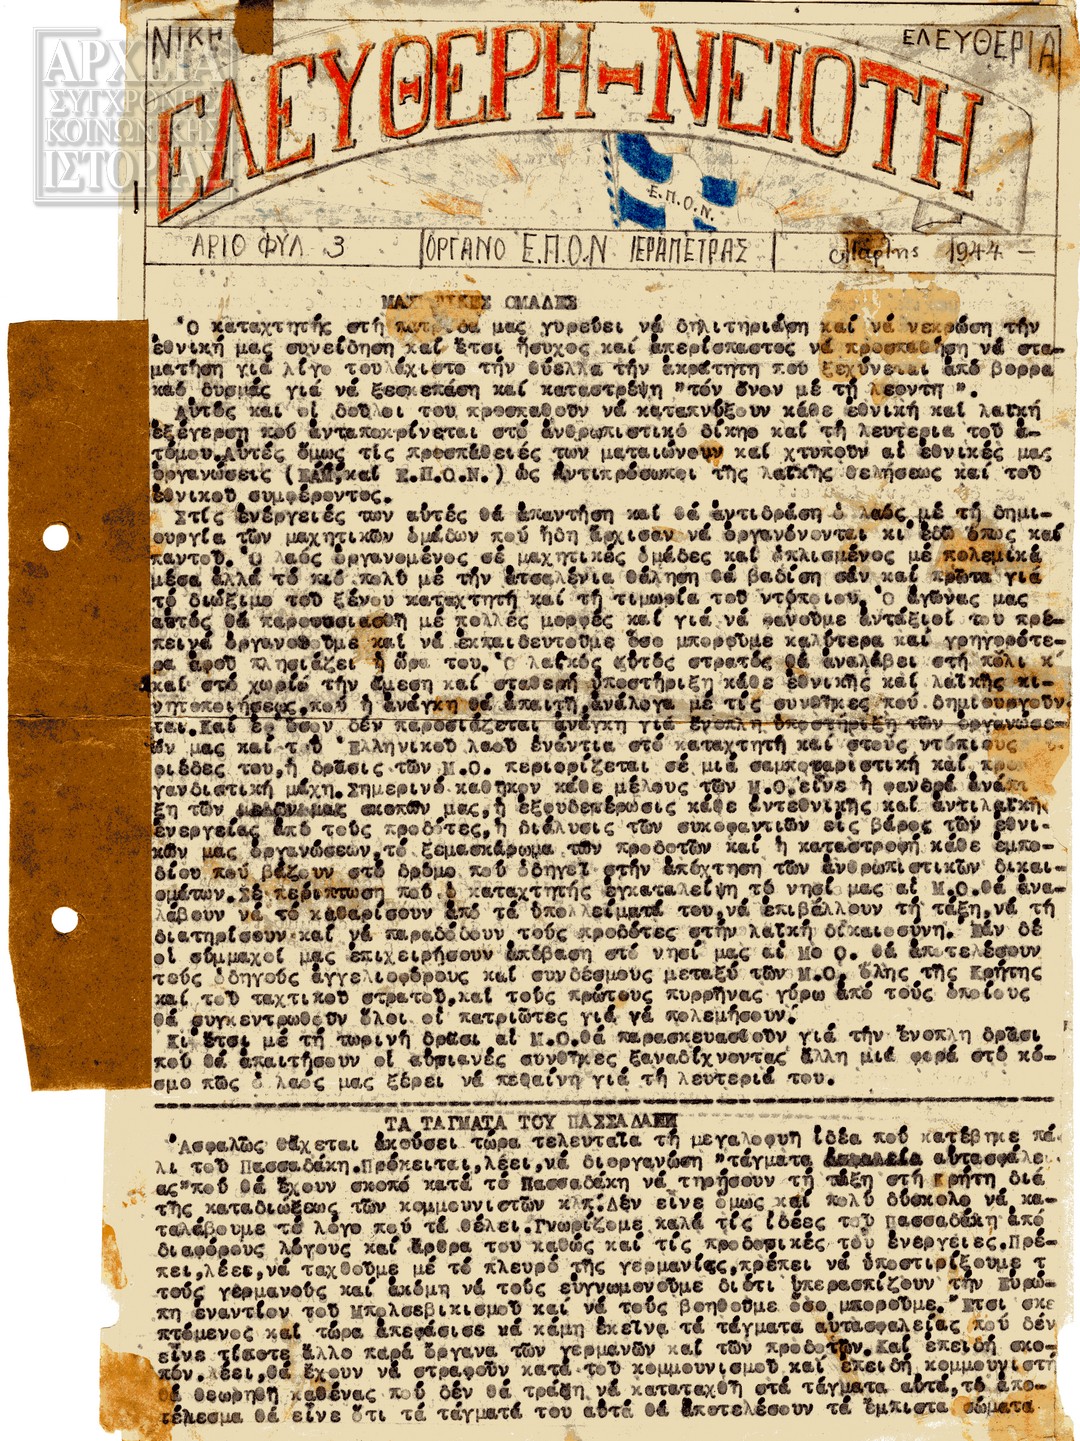 ΑΡΧΕΙΑ
ΣΥΓΧΡΟΝΗΣ
ΚΟΙΝΩΝΙΚΗΣ
ΙΣΤΟΡΙΑΣ
ΝΙΚΗ
ΕΛΕΥΘΕΡΙΑ
ΕΛΕΥΘΕΡΗ-ΝΕΙΟΤΗ
Ε.Π.Ο.Ν.
ΑΡΙΘ ΦΥΛ 3
ΌΡΓΑΝΟ Ε.Π.Ο.Ν ΙΕΡΑΠΕΤΡΑΣ
Μάρτης 1944 -
ΟΜΑΔΕΣ
Ὁ καταχτητής στή πατρίδα μας γυρεύει νά δηλιτηριάση καί νά νεκρώση τήν
ἐθνική μας συνείδηση καί ἔτσι ἥσυχος καί ἀπερίσπαστος νά προσπαθήση νά στα-
ματήση γιά λίγο τουλάχιστο τήν θύελλα τήν ἀκράτητη πού ξεχύνεται ἀπό βορρα
καό δυσμάς γιά νά ξεσκεπάση καί καταστρέψη "τόν ὄνον μέ τή λεοντη".
Αὐτός καί οἱ δοῦλοι του προσπαθοῦν νά καταπνίξουν κάθε ἐθνική καί λαϊκή
ἐξέγερση πού ἀνταποκρίνεται στό ἀνθρωπιστικό δίκηο καί τή λευτερια τοῦ ἀ-
τόμου.Αὐτές ὅμως τίς προσπάθειές των ματαιώνουν καί χτυποῦν αἱ ἐθνικές μας
ὀργανώσεις (ΕΑΜ,καί Ε.Π.Ο.Ν.) ὡς ἀντιπρόσωποι τῆς λαϊκῆς θελήσεως καί τοῦ
ἐθνικοῦ συμφέροντος.
Στίς ἐνέργειές των αὐτές θά ἀπαντήση καί θά ἀντιδράση ὁ λαός μέ τή δημι-
ουργία τῶν μαχητικῶν ὁμάδων πού ἤδη ἄρχισαν νά ὀργανόνονται κι ἐδῶ ὅπως καί
παντοῦ. Ὁ λαός ὀργανομένος σέ μαχητικές ὁμάδες καί ὁπλισμένος μέ πολεμικά
μέσα ἀλλά τό πιό πολύ μέ τήν ἀτσαλένια θέληση θά βαδίση σάν καί πρῶτα γιά
τό διώξιμο τοῦ ξένου καταχτητή καί τή τιμωρία τοῦ ντόπιου. Ὁ ἀγῶνας μας
αὐτός θά παρουσιασθῆ μέ πολλές μορφές καί γιά νά φανοῦμε ἀντάξιοί του πρέ-
πεινά ὀργανοθοῦμε καί νά ἐκπαιδευτοῦμε ὅσο μποροῦμε καλύτερα καί γρηγορότε-
ρα ἀφοῦ πλησιάζει ἡ ὥρα του. Ὁ λαϊκός αὐτός στρατός θά ἀναλάβει στή πόλι κ
καί στό χωριό τήν ἄμεση καί σταθερή ὑποστήριξη κάθε ἐθνικῆς καί λαϊκῆς κι-
νητοποιήσεως,πού ἡ ἀνάγκη θά ἀπαιτῆ,ἀνάλογα μέ τίς συνθῆκες πού δημιουργοῦν
ται.Καί ἐφ ὅσον δέν παροσιάζεται ἀνάγκη γιά ἔνοπλη ὑποστήριξη τῶν ὀργανώσε-
ών μας καί τοῦ Ἑλληνικοῦ λαοῦ ἐνάντια στό καταχτητή καί στούς ντόπιους
φιέδες του,ἡ δρᾶσις τῶν Μ.Ο. περιορίζεται σέ μιά σαμποταριστική καί προπ
γανδιστική μάχη.Σημερινό καθῆκον κάθε μέλους τῶν Μ.Ο.εἶνε ἡ φανερά ἀνάπτ
ξη τῶν σκοπῶν μας,ἡ ἐξουδετέρωσις κάθε ἀντεθνικῆς καί ἀντιλαϊκῆς
ἐνεργείας ἀπό τούς προδότες,ἡ διάλυσις τῶν συκοφαντιῶν εἰς βάρος τῶν ἐθνι-
κῶν μας ὀργανώσεων,τό ξεμασκάρωμα τῶν προδοτῶν καί ἡ καταστροφή κάθε ἐμπο-
δίου πού βάζουν στό δρόμο πού ὁδηγεῖ στήν ἀπόχτηση τῶν ἀνθρωπιστικῶν δικαι-
ομάτων.Σέ περίπτωση πού ὁ καταχτητής ἐγκαταλείψη τό νησί μας αἱ Μ.Ο.θά ἀνα-
λάβουν νά τό καθαρίσουν ἀπό τά ὑπολλείματά του,νά ἐπιβάλλουν τή τάξη,νά τή
διατηρίσουν καί νά παραδόσουν τούς προδότες στήν λαϊκή δικαιοσύνη. Ἐάν δέ
οἱ σύμμαχοί μας ἐπιχειρήσουν ἀπόβαση στό νησί μας αἱ Μο Ο. θά ἀποτελέσουν
τούς ὁδηγούς ἀγγελιοφόρους καί συνδέσμους μεταξύ τῶν Μ.Ο. ὅλης τῆς Κρήτης
καί τοῦ ταχτικοῦ στρατοῦ,καί τούς πρώτους πυρρῆνας γύρω ἀπό τούς ὁποίους
θά συγκεντρωθοῦν ὅλοι οἱ πατριῶτες γιά νά πολεμήσουν.
Κι ἔτσι μέ τή τωρινή δρᾶσι αἱ Μ.Ο.θά παρασκευασθοῦν γιά τήν ἔνοπλη δρᾶσι
πού θά ἀπαιτήσουν οἱ αὐριανές συνθῆκες ξαναδίχνοντας ἄλλη μιά φορά στό κό-
σμο πῶς ὁ λαός μας ξέρει νά πεθαίνη γιά τή λευτεριά του.
ΤΑ ΤΑΓΜΑΤΑ ΤΟΥ ΠΑΣΣΑΔΑΚΗ
Ἀσφαλῶς θἄχεται ἀκούσει τώρα τελευταῖα τή μεγαλοφυῆ ἰδέα πού κατέβηκε πά
λι τοῦ Πασσαδάκη.Πρόκειται,λέει,νά διοργανώση "τάγματα αὐτασφάλε
ας"πού θά ἔχουν σκοπό κατά τό Πασσαδάκη νά τηρήσουν τή τάξη στή Κρήτη διά
τῆς καταδιώξεως τῶν κομμουνιστῶν κλπ.Δέν εἶνε ὅμως καί πολύ δύσκολο νά κα-
ταλάβουμε τό λόγο πού τά θέλει.Γνωρίζομε καλά τίς ἰδέες τοῦ Πασσαδάκη ἀπό
διαφόρους λόγους καί ἄρθρα του καθώς καί τίς προδοτικές του ἐνέργειες.Πρέ-
πει,λέει,νά ταχθοῦμε μέ τό πλευρό τῆς γερμανίας,πρέπει νά ὑποστιρίξουμε τ
τούς γερμανούς καί ἀκόμη νά τούς εὐγνωμονοῦμε διότι ὑπερασπίζουν τήν Εὐρώ-
πη ἐναντίον τοῦ Μπολσεβικισμοῦ καί νά τούς βοηθοῦμε ὅσο μποροῦμε. Ἔτσι σκε
πτόμενος καί τώρα ἀπεφάσισε νά κάμη ἐκεῖνα τά τάγματα αὐτασφαλείας πού δέν
εἶνε τίποτε ἄλλο παρά ὄργανα τῶν γερμανῶν καί τῶν προδοτῶν.Καί ἐπειδή σκο-
πόν.λέει,θά ἔχουν νά στραφοῦν κατά τοῦ κομμουνισμοῦ καί ἐπειδή κομμουνιστή
θά θεωρηθῆ καθένας πού δέν θά τρέξη νά καταταχθῆ στά τάγματα αὐτά,τό ἀπο-
τέλεσμα θά εἶνε ὅτι τά τάγματά του αὐτά θά ἀποτελέσουν τά ἔμπιστα σώματα